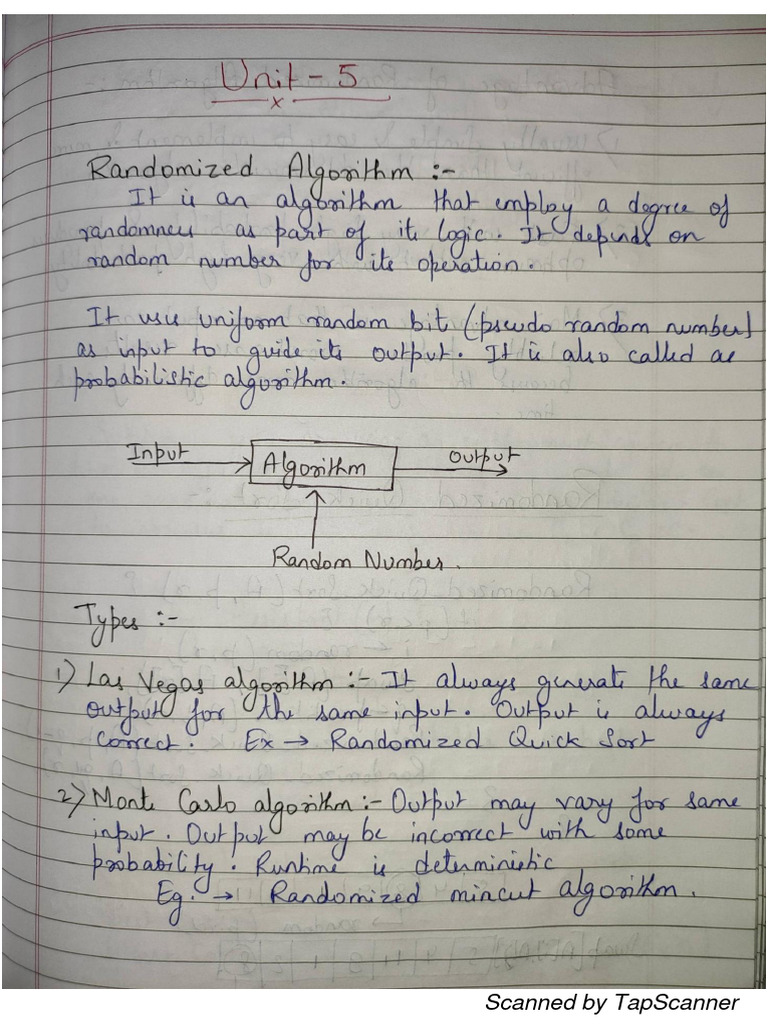 Unit - 5
x
Randomized Algorithm :-
It is an algorithm that employ a degree of
randomness as part of its logic. It depends on
random number for its operation.
It uses uniform random bit (pseudo random number)
as input to guide its output. It is also called as
probabilistic algorithm.
Input Algorithm Output
Random Number.
Types :-
1) Las Vegas algorithm :- It always generate the same
output for the same input. Output is always
correct. Ex → Randomized Quick Sort
2) Monte Carlo algorithm :- Output may vary for same
input. Output may be incorrect with some
probability. Runtime is deterministic
Eg. → Randomized mincut algorithm.
Scanned by TapScanner